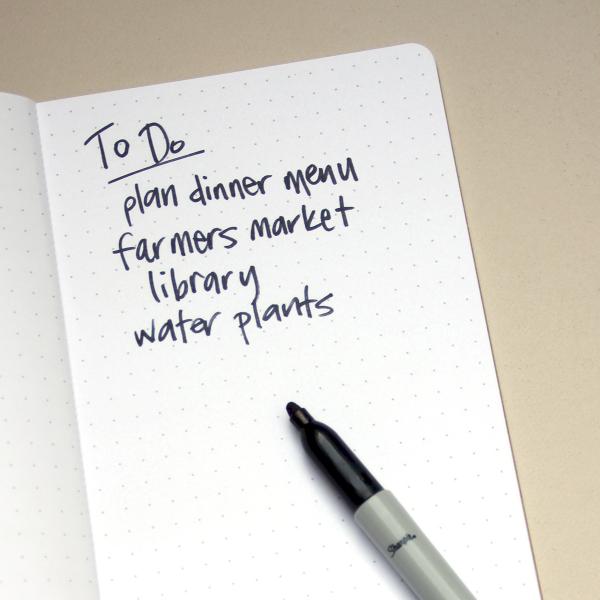 To Do
plan dinner menu
farmers market
library
water plants
Sharpie